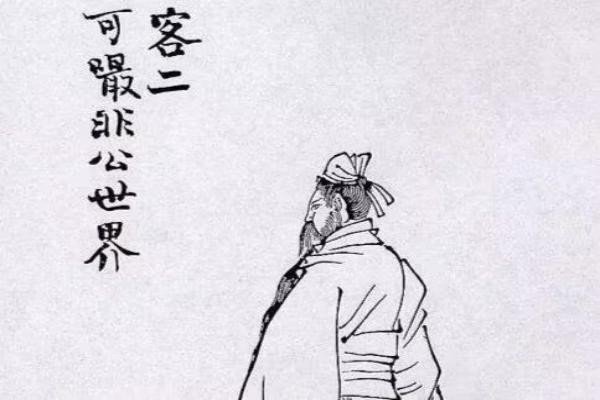 客二
可嘬非公世界